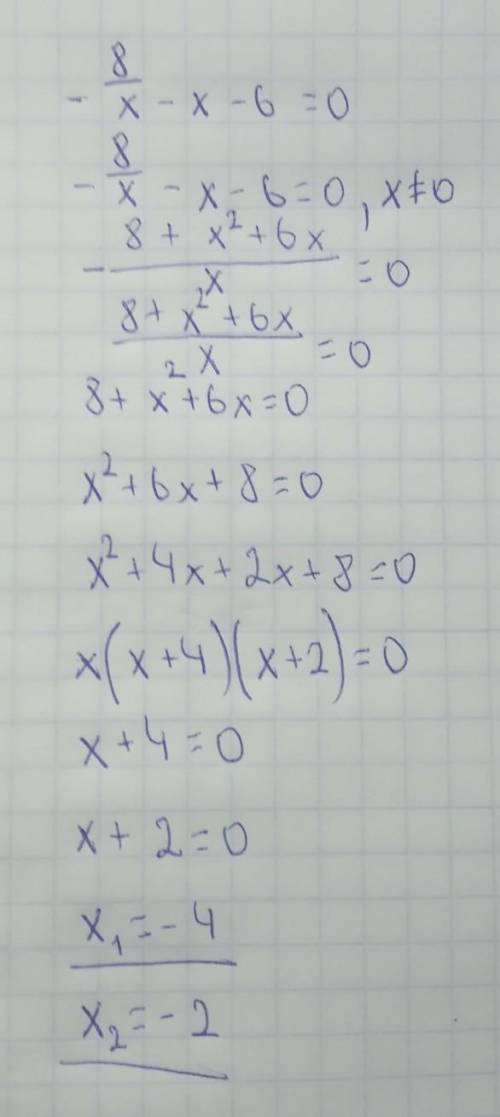 - 8/x - x - 6 = 0
- 8/x - x - 6 = 0, x ≠ 0
- (8 + x² + 6x)/x = 0
(8 + x² + 6x)/x = 0
8 + x² + 6x = 0
x² + 6x + 8 = 0
x² + 4x + 2x + 8 = 0
x(x + 4)(x + 2) = 0
x + 4 = 0
x + 2 = 0
x₁ = - 4
x₂ = - 2